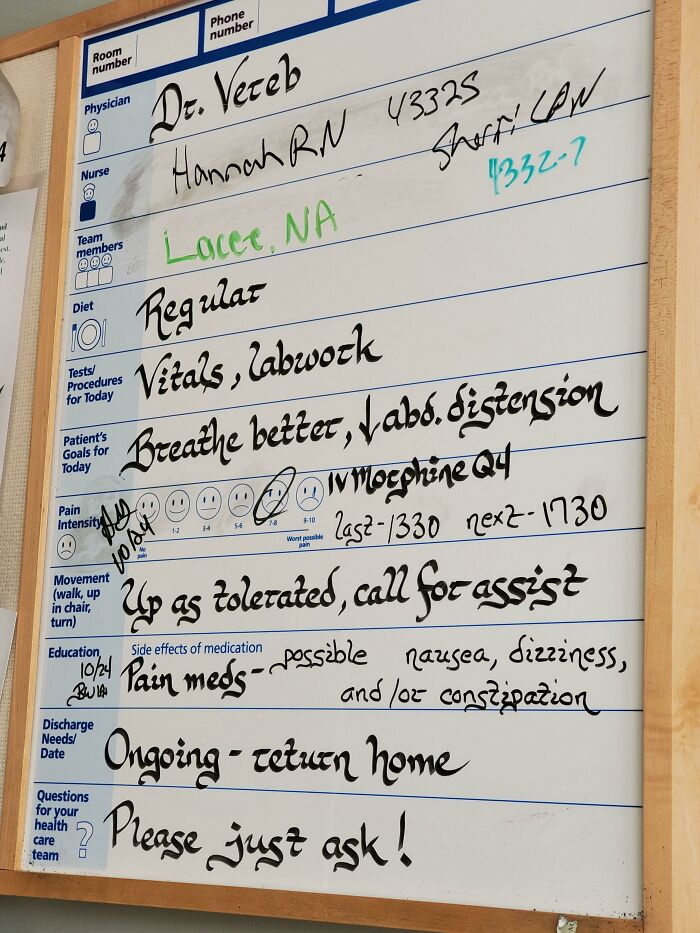 Room number
Phone number
Physician
Dr. Vereb
Nurse
Hannah RN 43325
Sherri LPN
4332-7
Team members
Lacee, NA
Diet
Regular
Tests/ Procedures for Today
Vitals, labwork
Patient's Goals for Today
Breathe better, ↓ abd. distension
Pain Intensity
10/24
No pain
1-2
3-4
5-6
7-8
9-10
Worst possible pain
IV Morphine Q4
last-1330 next-1730
Movement (walk, up in chair, turn)
Up as tolerated, call for assist
Education
10/24
Side effects of medication
Pain meds - possible nausea, dizziness,
and/or constipation
Discharge Needs/ Date
Ongoing - return home
Questions for your health care team
?
Please just ask!